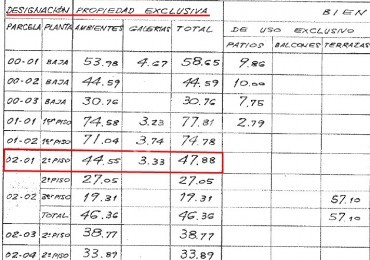 DESIGNACIÓN PROPIEDAD EXCLUSIVA BIEN
PARCELA PLANTA AMBIENTES GALERIAS TOTAL DE USO EXCLUSIVO
PATIOS BALCONES TERRAZAS
00-01 BAJA 53.98 4.67 58.65 9.86
00-02 BAJA 44.59 44.59 10.00
00-03 BAJA 30.76 30.76 7.75
01-01 1ºPISO 74.58 3.23 77.81 2.79
01-02 1ºPISO 71.04 3.74 74.78
02-01 2ºPISO 44.55 3.33 47.88
2ºPISO 27.05 27.05
02-02 PISO 19.31 19.31 57.10
TOTAL 46.36 46.36 57.10
02-03 2ºPISO 38.77 38.77
02-04 2ºPISO 33.89 33.89